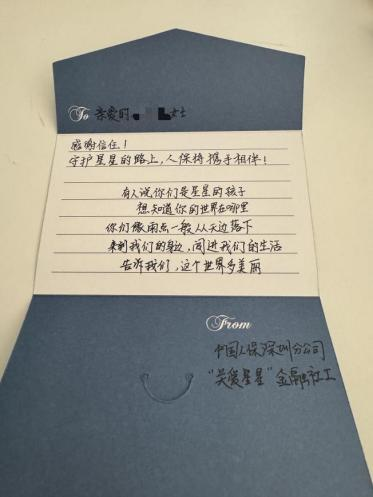 To 亲爱的 女士
感谢信任！
守护星星的路上，人保将携手相伴！
有人说你们是星星的孩子
想知道你的世界在哪里
你们像雨点一般从天边落下
来到我们的身边，闯进我们的生活
告诉我们，这个世界多美丽
From
中国人保深圳分公司
“关爱星星”金融社工